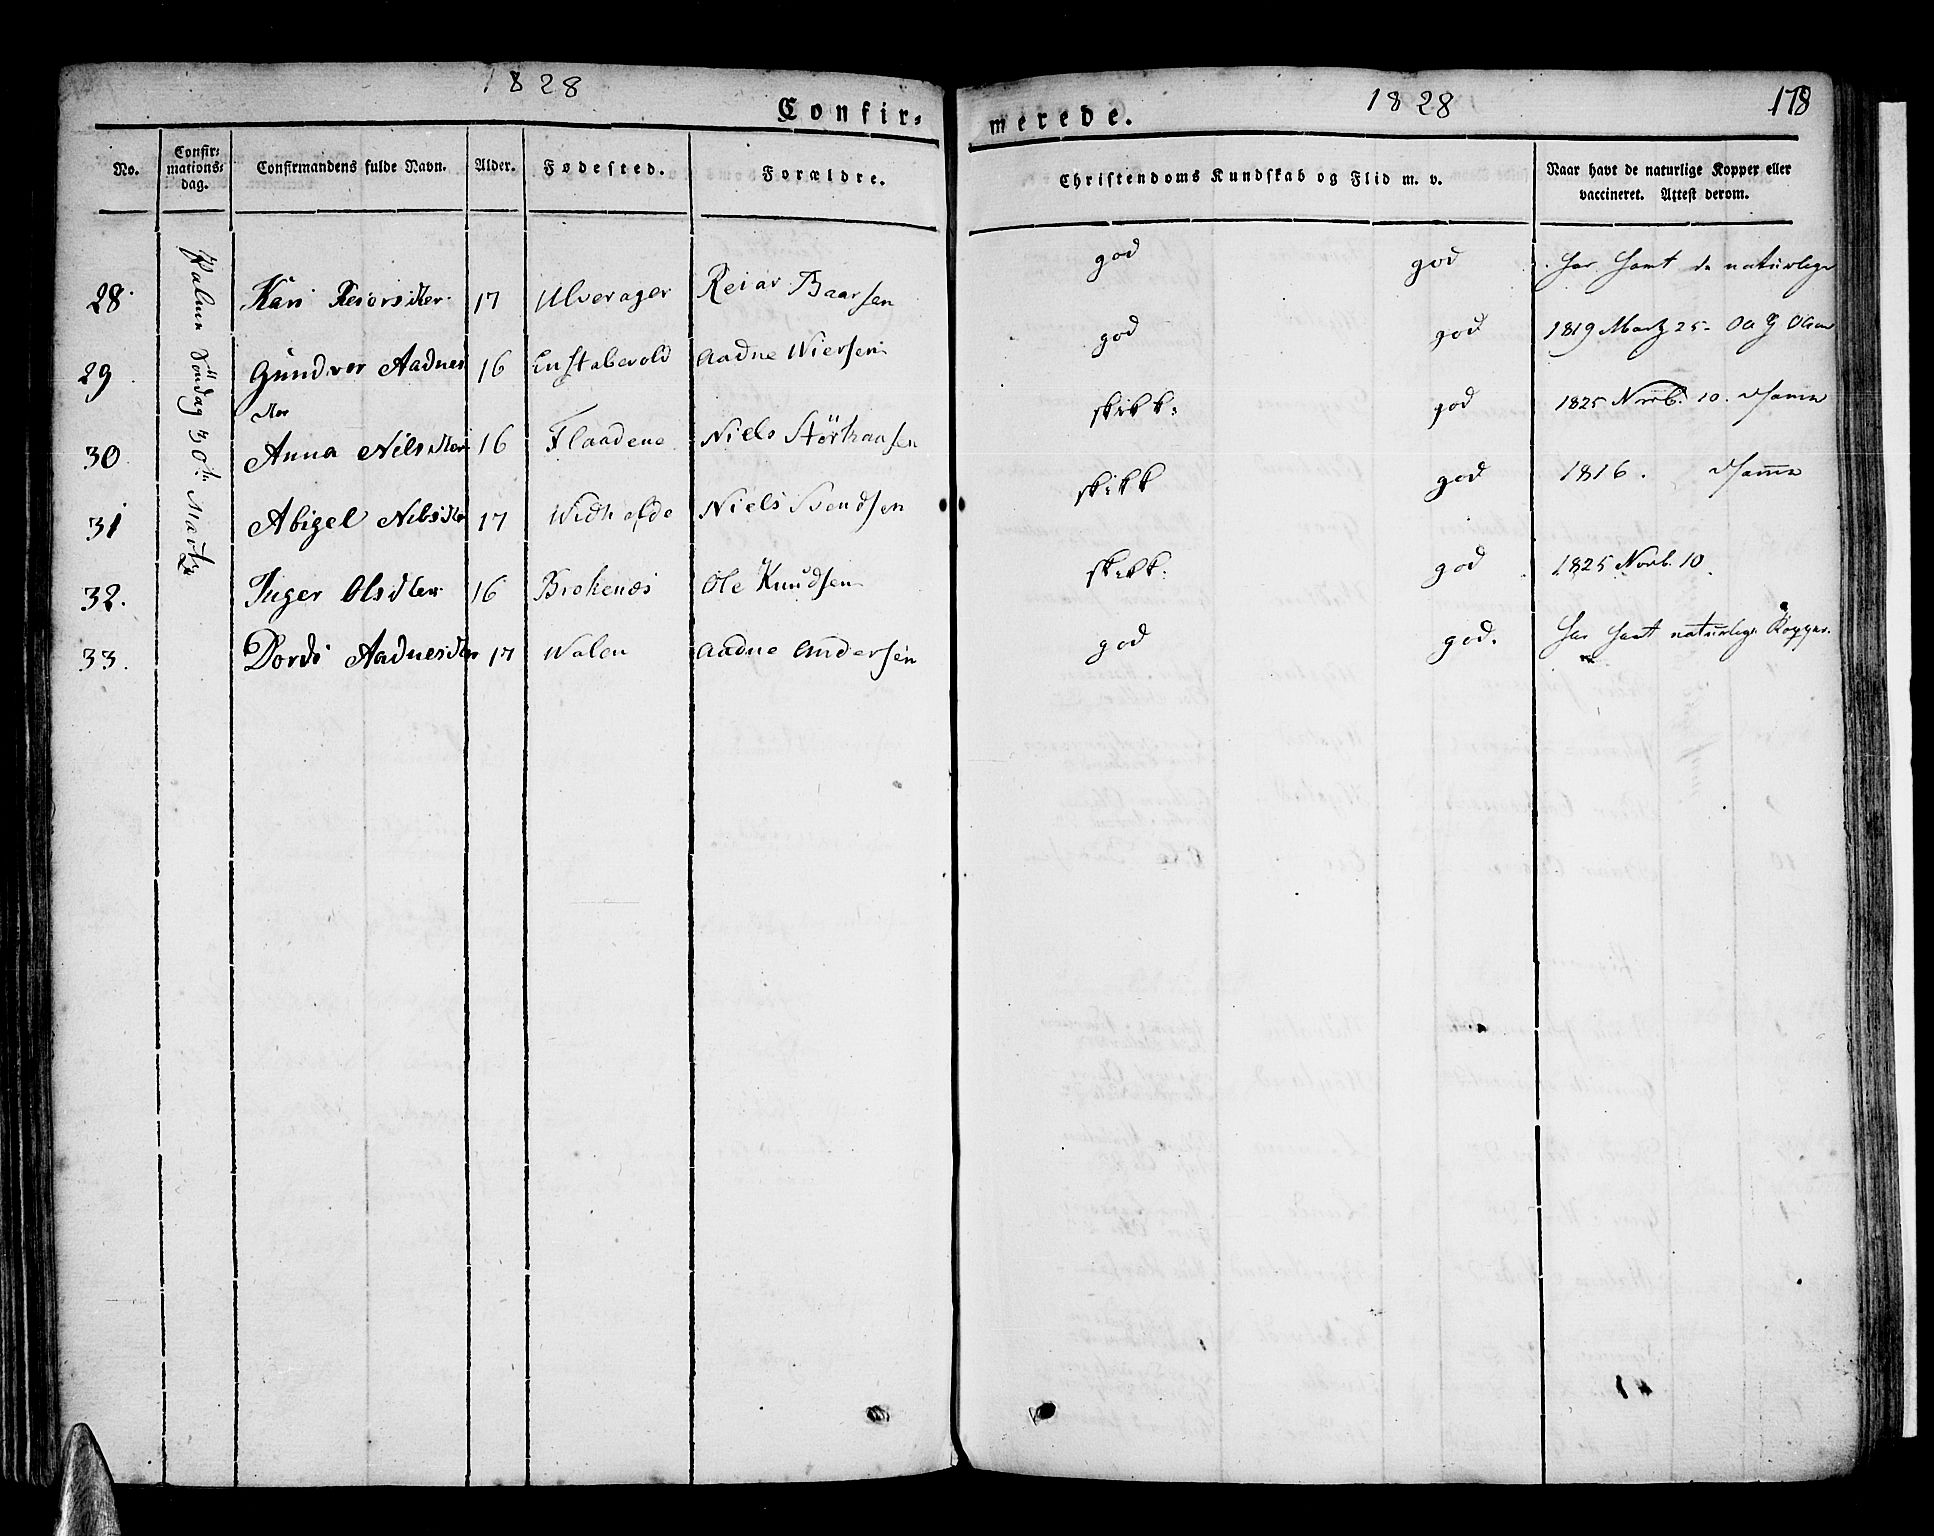 1828
1828
178
Confir-
merede.
No.
Confir-
mations-
dag.
Confirmandens fulde Navn.
Alder.
Fødested.
Forældre.
Christendoms Kundskab og Flid m. v.
Naar havt de naturlige Kopper eller
vaccineret. Attest derom.
Palme Søndag 30te Martz
28. Kari Reiorsdter 17 Ulverager Reiar Baarsen god god har havt de naturlige
29. Gundvor Aadnes 16 Enstabevold Aadne Wiersen god god 1819 Martz 25 - Oa G Olsen
dter
30. Anna Nilsdter 16 Flaadene Niels Størkaasen skikk: god 1825 Novb. 10. Samme
31 Abigel Nilsdter 17 Niels Svendsen skikk god 1816. Samme
32. Inger Olsdter 16 Brekenæs Ole Knudsen skikk: god 1825 Novb. 10
33. Dorde Aadnesdter 17 Walen Aadne Andersen god god. har havt naturlige Kopper.